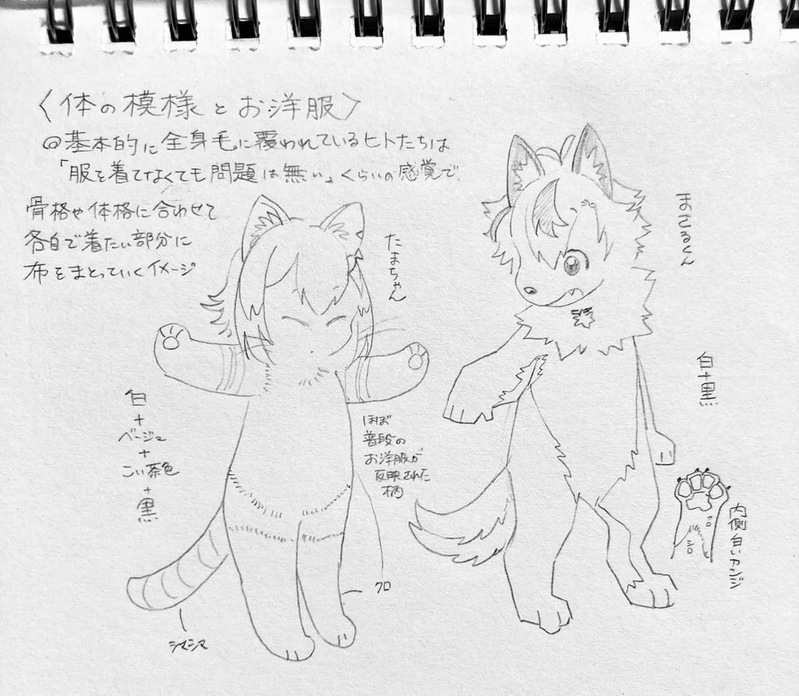 〈体の模様とお洋服〉
@基本的に全身毛に覆われているヒトたちは
「服を着てなくても問題は無い」くらいの感覚で
骨格や体格に合わせて
各自で着たい部分に
布をまとっていくイメージ
たまちゃん
まさるくん
白
+
ベージュ
+
こい茶色
+
黒
ほぼ
普段の
お洋服が
反映された
柄
白+黒
クロ
シロ
内側白いカンジ
クロ
シマシマ